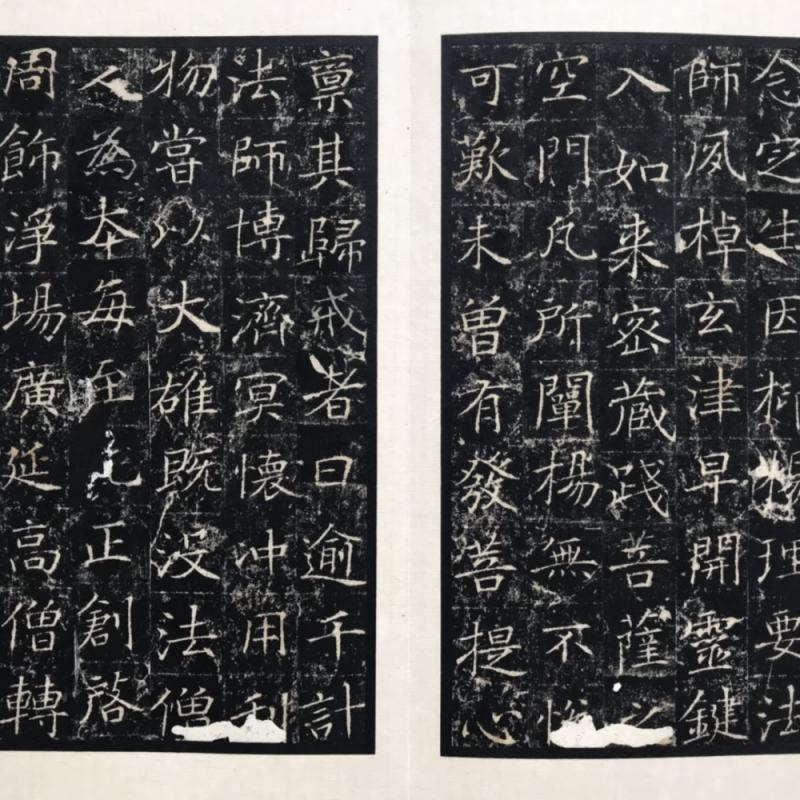 念定生因理要法
師夙棹玄津早開靈鍵
入如来密藏踐菩薩之
空門凡所闡楊無不
可歎未曾有發菩提心
稟其歸戒者日逾千計
法師博濟冥懷冲用利
物嘗以大雄既没法僧
人為本每至元正創啓
周飾淨場廣延高僧轉